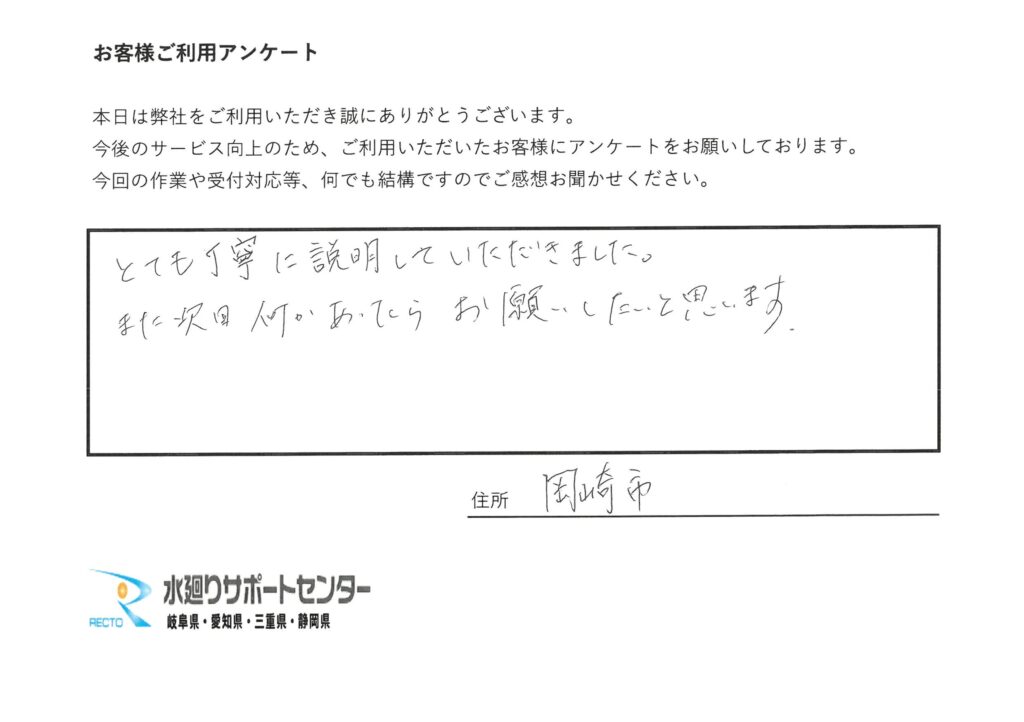 お客様ご利用アンケート
本日は弊社をご利用いただき誠にありがとうございます。
今後のサービス向上のため、ご利用いただいたお客様にアンケートをお願いしております。
今回の作業や受付対応等、何でも結構ですのでご感想お聞かせください。
とても丁寧に説明していただきました。
また次回何かあったらお願いしたいと思います.
住所 岡崎市
水廻りサポートセンター
RECTO 岐阜県・愛知県・三重県・静岡県